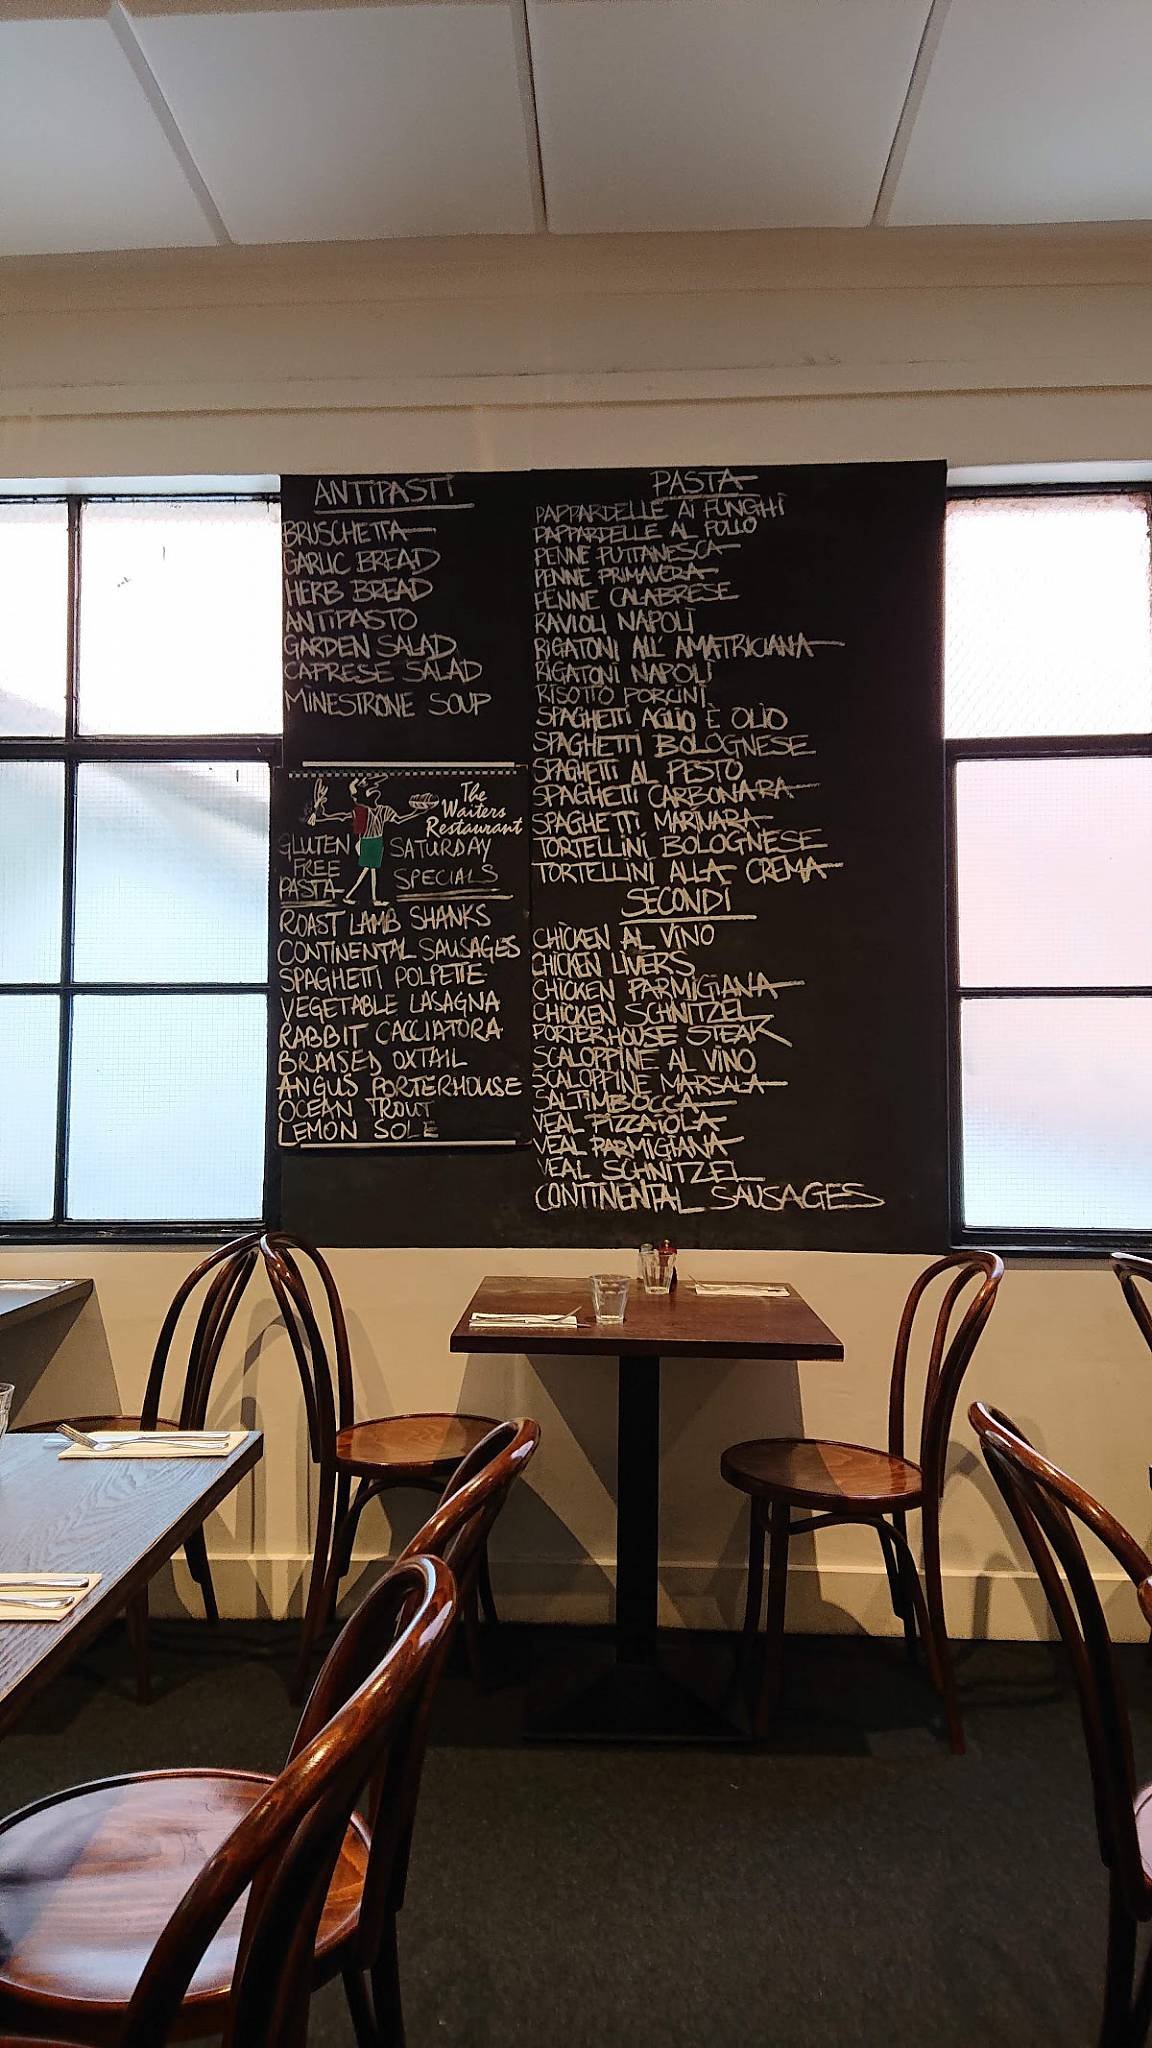 ANTIPASTI
BRUSCHETTA
GARLIC BREAD
HERB BREAD
ANTIPASTO
GARDEN SALAD
CAPRESE SALAD
MINESTRONE SOUP
The
Waiters
Restaurant
GLUTEN
FREE
PASTA
SATURDAY
SPECIALS
ROAST LAMB SHANKS
CONTINENTAL SAUSAGES
SPAGHETTI POLPETTE
VEGETABLE LASAGNA
RABBIT CACCIATORA
BRAISED OXTAIL
ANGUS PORTERHOUSE
OCEAN TROUT
LEMON SOLE
PASTA
PAPPARDELLE AI FUNGHI
PAPPARDELLE AL POLLO
PENNE PUTTANESCA
PENNE PRIMAVERA
PENNE CALABRESE
RAVIOLI NAPOLI
RIGATONI ALL' AMATRICIANA
RIGATONI NAPOLI
RISOTTO PORCINI
SPAGHETTI AGLIO È OLIO
SPAGHETTI BOLOGNESE
SPAGHETTI AL PESTO
SPAGHETTI CARBONARA
SPAGHETTI MARINARA
TORTELLINI BOLOGNESE
TORTELLINI ALLA CREMA
SECONDI
CHICKEN AL VINO
CHICKEN LIVERS
CHICKEN PARMIGIANA
CHICKEN SCHNITZEL
PORTERHOUSE STEAK
SCALOPPINE AL VINO
SCALOPPINE MARSALA
SALTIMBOCCA
VEAL PIZZAIOLA
VEAL PARMIGIANA
VEAL SCHNITZEL
CONTINENTAL SAUSAGES